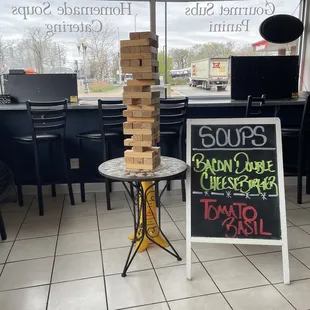 Homemade Soups
Catering
Gourmet Subs
Panini
SOUPS
BACON DOUBLE
CHEESEBURGER
TOMATO
BASIL